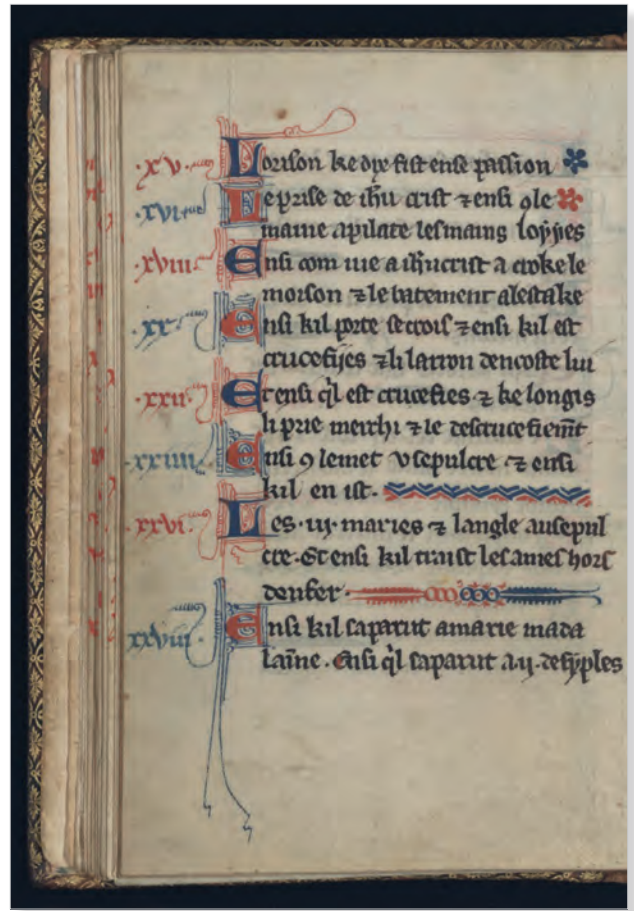 .xv. Lorison ke dix fist en se passion
.xvi. Le prise de ihu crist ⁊ ensi ꝯ le
maine a pilate les mains loyies
.xviii. Ensi com uie a ihu crist a croke le
morson ⁊ le batement a lestake
.xx. Ensi kil porte se crois ⁊ ensi kil est
crucefijes ⁊ li larron dencoste lui
.xxii. Et ensi ql est crucefies. ⁊ ke longis
li prie merchi ⁊ le descrucefiemt
.xxiiii. Ensi ꝯ le met v sepulcre ⁊ ensi
kil en ist.
.xxvi. Les .iij. maries ⁊ langle au sepul
cre. Et ensi kil traist les ames hors
denfer.
.xxviii. Ensi kil saparut a marie mada
laine. Ensi ql saparut a .ij. desyples